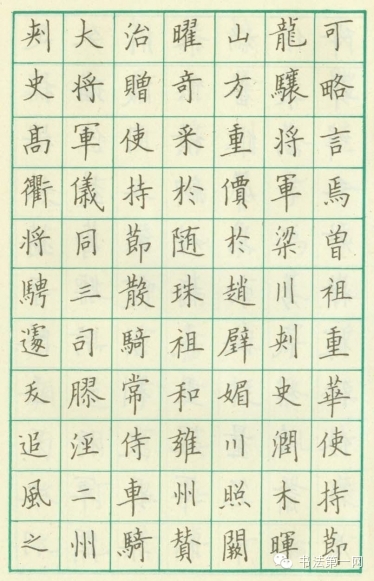 可略言焉曾祖重華使持節
龍驤将軍梁川刾史潤木暉
山方重價於趙璧媚川照闕
曜奇采於随珠祖和雍州賛
治贈使持節散騎常侍車騎
大将軍儀同三司膠涇二州
刾史髙衢将騁遽反追風之
书法第一网